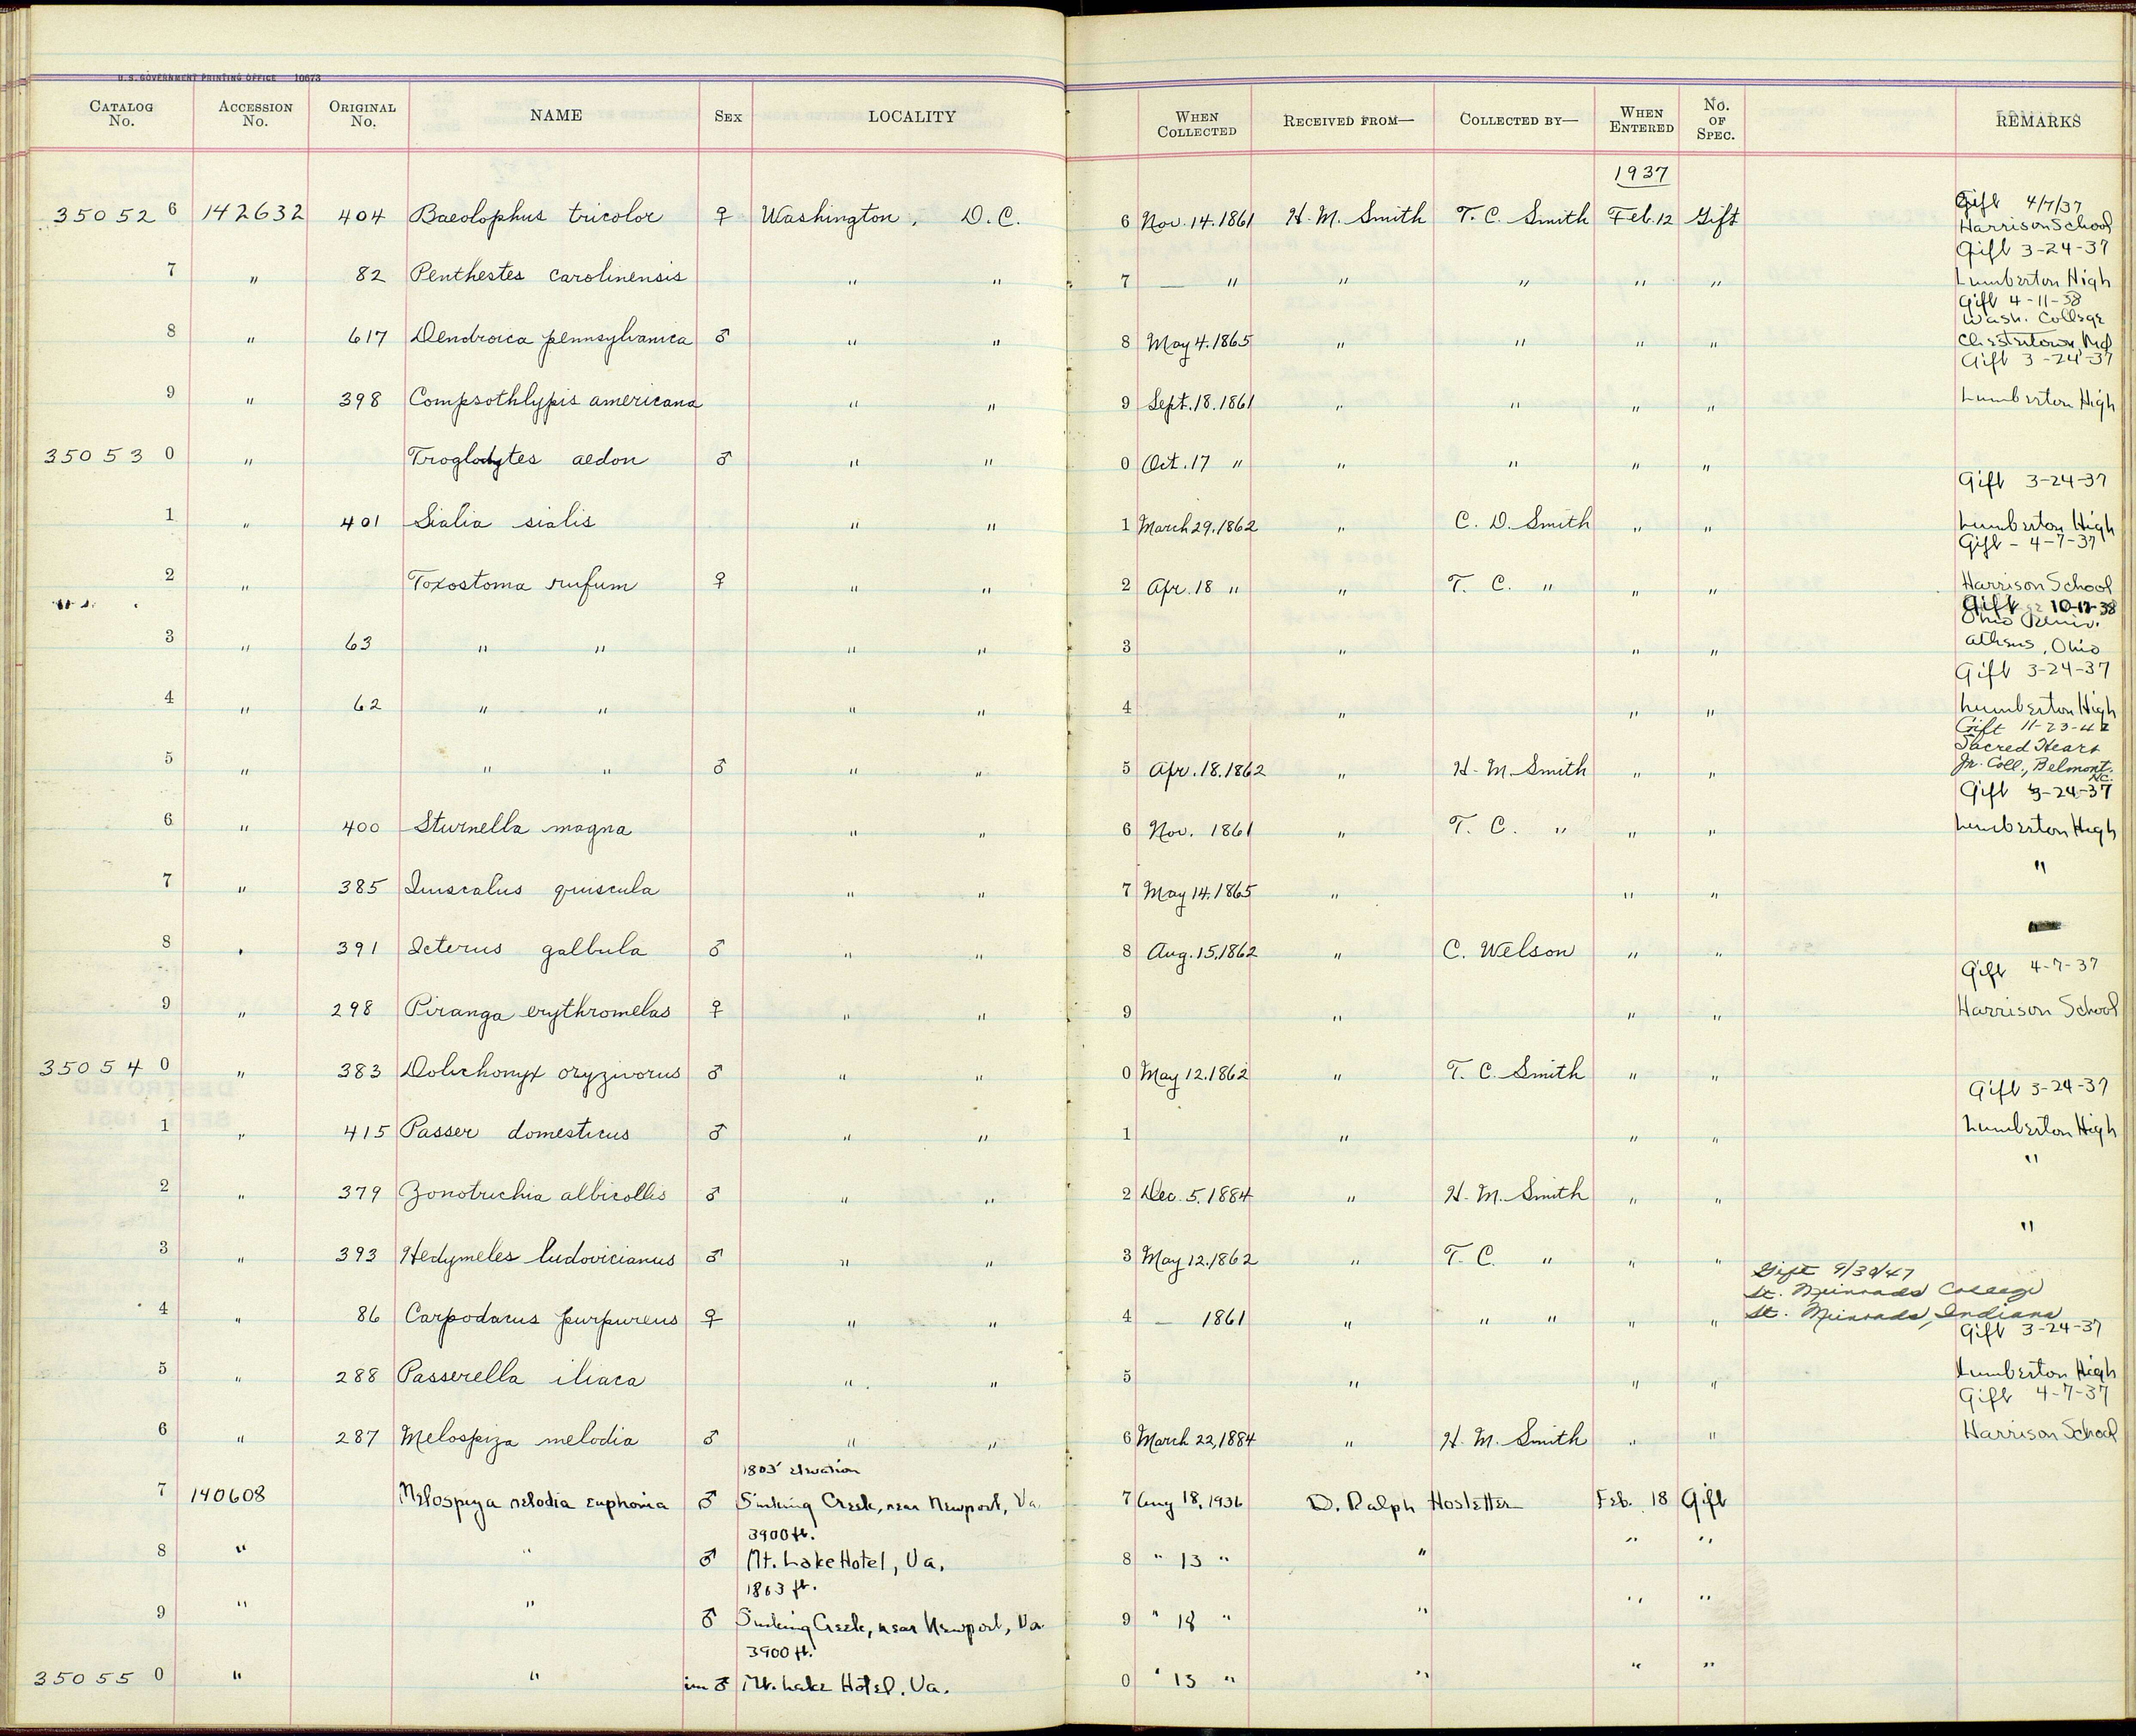 U. S. GOVERNMENT PRINTING OFFICE 10673
CATALOG No. ACCESSION No. ORIGINAL No. NAME SEX LOCALITY WHEN COLLECTED RECEIVED FROM— COLLECTED BY— WHEN ENTERED No. OF SPEC. REMARKS
1937
Gift 4/7/37
35052 6 142632 404 Baeolophus bicolor ♀ Washington, D.C. 6 Nov. 14. 1861 H. M. Smith T. C. Smith Feb. 12 Gift Harrison School
Gift 3-24-37
7 " 82 Penthestes carolinensis " " 7 — " " " " " Lumberton High
Gift 4-11-38
Wash. College
8 " 617 Dendroica pennsylvanica ♂ " " 8 May 4. 1865 " " " " Chestertown, Md
Gift 3-24-37
9 " 398 Compsothlypis americana " " 9 Sept. 18. 1861 " " " " Lumberton High
35053 0 " Troglodytes aedon ♂ " " 0 Oct. 17 " " " " "
Gift 3-24-37
1 " 401 Sialia sialis " " 1 March 29. 1862 " C. D. Smith " " Lumberton High
Gift - 4-7-37
2 " Toxostoma rufum ♀ " " 2 Apr. 18 " " T. C. " " " Harrison School
Gift 10-17-38
Ohio Univ.
3 " 63 " " " " 3 " " " Athens, Ohio
Gift 3-24-37
4 " 62 " " " " 4 " " " Lumberton High
Gift 11-23-42
Sacred Heart
5 " " " ♂ " " 5 Apr. 18. 1862 " H. M. Smith " " Jr. Coll., Belmont, N.C.
Gift 3-24-37
6 " 400 Sturnella magna " " 6 Nov. 1861 " T. C. " " " Lumberton High
7 " 385 Quiscalus quiscula " " 7 May 14. 1865 " " " "
8 " 391 Icterus galbula ♂ " " 8 Aug. 15. 1862 " C. Welson " "
Gift 4-7-37
9 " 298 Piranga erythromelas ♀ " " 9 " " " Harrison School
35054 0 " 383 Dolichonyx oryzivorus ♂ " " 0 May 12. 1862 " T. C. Smith " "
Gift 3-24-37
1 " 415 Passer domesticus ♂ " " 1 " " " Lumberton High
2 " 379 Zonotrichia albicollis ♂ " " 2 Dec. 5. 1884 " H. M. Smith " " "
3 " 393 Hedymeles ludovicianus ♂ " " 3 May 12. 1862 " T. C. " " " "
Gift 9/30/47
St. Meinrads College
4 " 86 Carpodacus purpureus ♀ " " 4 — 1861 " " " " " St. Meinrads, Indiana
Gift 3-24-37
5 " 288 Passerella iliaca " " 5 " " " Lumberton High
Gift 4-7-37
6 " 287 Melospiza melodia ♂ " " 6 March 22, 1884 " H. M. Smith " " Harrison School
1803' elevation
7 140608 Melospiza melodia euphonia ♂ Sinking Creek, near Newport, Va. 7 Aug 18, 1936 D. Ralph Hostetter Feb. 18 Gift
3900 ft.
8 " " ♂ Mt. Lake Hotel, Va. 8 " 13 " " " "
1803 ft.
9 " " ♂ Sinking Creek, near Newport, Va. 9 " 18 " " " "
3900 ft.
35055 0 " " im ♂ Mt. Lake Hotel, Va. 0 " 13 " " " "